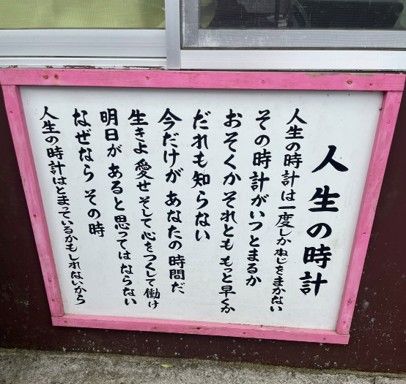 人生の時計
人生の時計は一度しかねじをまかない
その時計がいつとまるか
おそくかそれとも もっと早くか
だれも知らない
今だけが あなたの時間だ
生きよ 愛せ そして心をつくして働け
明日が あると思ってはならない
なぜなら その時
人生の時計はとまっているかもしれないから